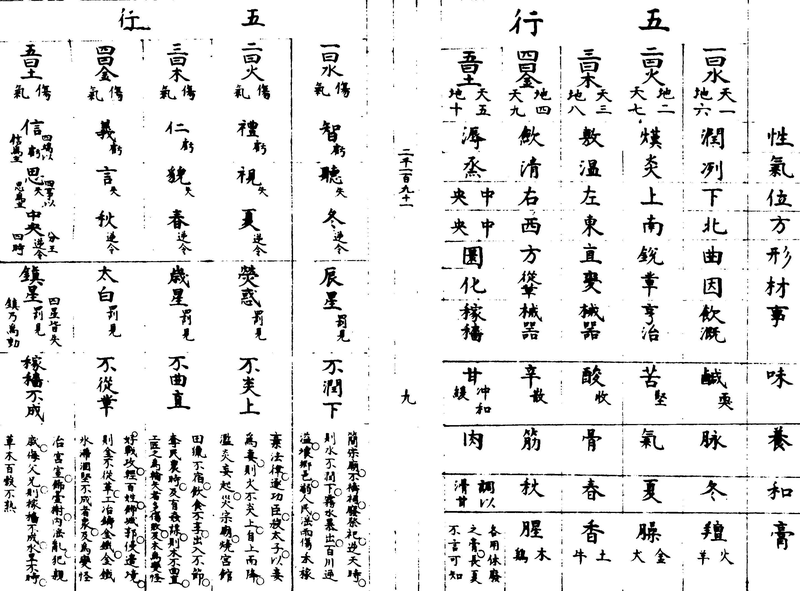 五行
性 氣 位 方 形 材 事 味 養 和 膏
一曰水 天一地六 潤 冽 下 北 曲 因 飲漑 鹹耎 脉 冬 羶 羊火
二曰火 地二天七 熯 炎 上 南 銳 革 亨治 苦堅 氣 夏 臊 犬金
三曰木 天三地八 敷 溫 左 東 直 變 械器 酸收 骨 春 香 牛土
四曰金 地四天九 斂 清 右 西 方 從革 械器 辛散 筋 秋 腥 鷄木
五曰土 天五地十 溽 蒸 中央 中央 圜 化 稼穡 甘沖和緩 肉 調以滑甘 各用休廢之膏長夏不言可知
二千一百九十一
九
五行
一曰水 傷氣 智虧 聽失 冬逆令 辰星罰見 不潤下
簡宗廟不禱祠廢祭祀逆天時
則水不潤下霧水暴出百川逆
溢壞鄉邑溺人民淫雨傷禾稼
二曰火 傷氣 禮虧 視失 夏逆令 熒惑罰見 不炎上
棄法律逐功臣殺太子以妾
爲妻則火不炎上自上而降
濫炎妄起災宗廟燒宮館
三曰木 傷氣 仁虧 貌失 春逆令 歲星罰見 不曲直
田獵不宿飲食不享出入不節
奪民農時及有姦謀則木不曲直
工匠之爲輪矢者多傷敗及木爲變怪
四曰金 傷氣 義虧 言失 秋逆令 太白罰見 不從革
好戰攻輕百姓飾城郭侵邊境
則金不從革冶鑄金鐵金鐵
冰滯涸堅不成者衆及爲變怪
五曰土 傷氣 信虧 四端以信爲主 思失 四事以思爲主 中央逆令 分王四時 鎮星罰見 四星皆失鎮乃爲動 稼穡不成
治宮室飾臺榭內淫亂犯親
戚侮父兄則稼穡不成水旱不時
草木百穀不熟